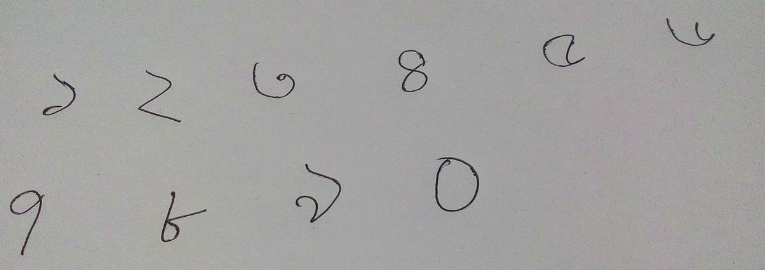 ১ ২ ৩ ৪ ৫ ৬
৭ ৮ ৯ ০